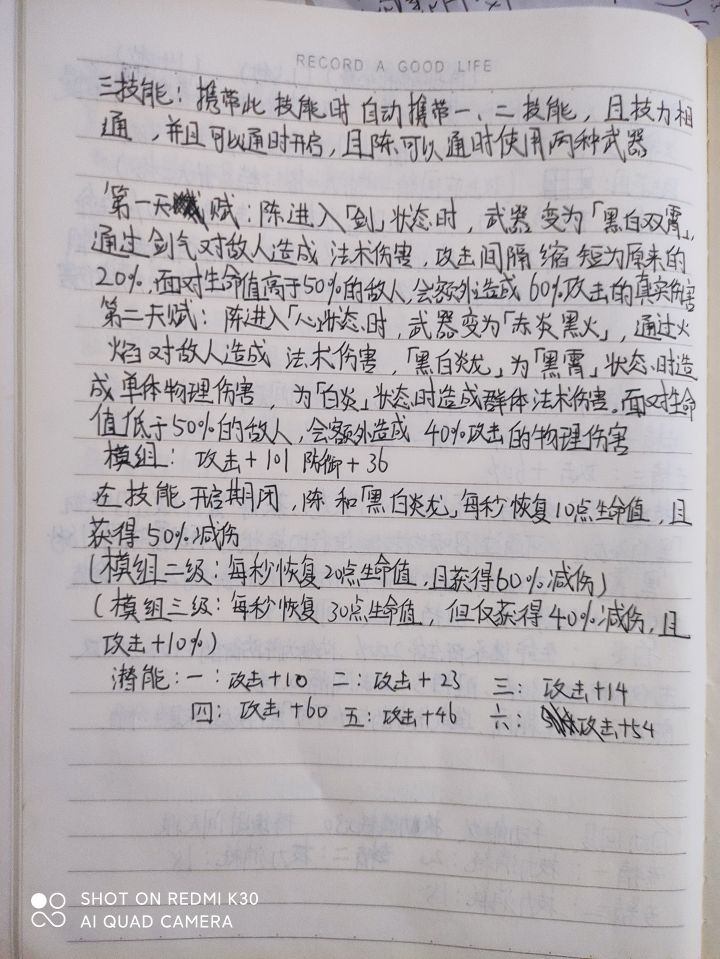 RECORD A GOOD LIFE
三技能：携带此技能时自动携带一、二技能，且技力相
通，并且可以通时开启，且陈可以通时使用两种武器
第一天赋：陈进入「剑」状态时，武器变为「黑白双霄」，
通过剑气对敌人造成法术伤害，攻击间隔缩短为原来的
20%，面对生命值高于50%的敌人，会额外造成60%攻击的真实伤害
第二天赋：陈进入「心」状态时，武器变为「赤炎黑火」，通过火
焰对敌人造成法术伤害，「黑白炎龙」为「黑霄」状态时造
成单体物理伤害，为「白炎」状态时造成群体法术伤害。面对生命
值低于50%的敌人，会额外造成40%攻击的物理伤害
模组：攻击+101 防御+36
在技能开启期闭，陈和「黑白炎龙」每秒恢复10点生命值，且
获得50%减伤
（模组二级：每秒恢复20点生命值，且获得60%减伤）
（模组三级：每秒恢复30点生命值，但仅获得40%减伤，且
攻击+10%）
潜能：一：攻击+10 二：攻击+23 三：攻击+14
四：攻击+60 五：攻击+46 六：攻击+54
SHOT ON REDMI K30
AI QUAD CAMERA